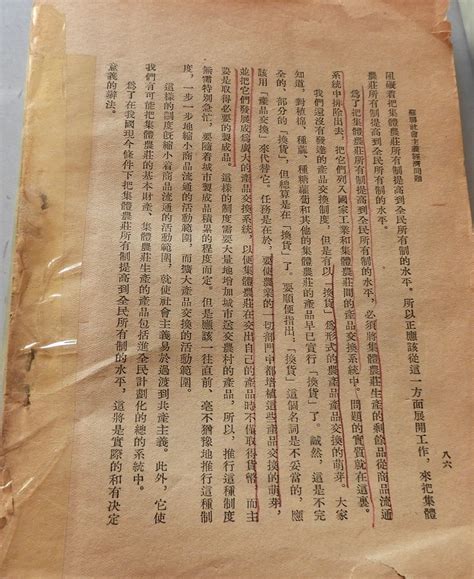 蘇聯社會主義經濟問題
八六
阻礙着把集體農莊所有制提高到全民所有制的水平。所以正應該從這一方面展開工作，來把集體
農莊所有制提高到全民所有制的水平。
爲了把集體農莊所有制提高到全民所有制的水平，必須將集體農莊生產的剩餘品從商品流通
系統中排除出去，把它們列入國家工業和集體農莊間的產品交換系統中。問題的實質就在這裏。
我們還沒有發達的產品交換制度，但是有以「換貨」爲形式的農產品產品交換的萌芽。大家
知道，對植棉、種蔴、種糖蘿蔔和其他的集體農莊的產品早已實行「換貨」了。誠然，這是不完
全的、部分的「換貨」，但總算是在「換貨」了。要順便指出，「換貨」這個名詞是不妥當的，應
該用「產品交換」來代替它。任務是在於，要使農業的一切部門中都培植這些產品交換的萌芽，
並把它們發展成爲廣大的產品交換系統，以便集體農莊在交出自己的產品時不僅取得貨幣，而主
要是取得必要的製成品。這樣的制度需要大量地增加城市送交農村的產品，所以，推行這種制度
無需特別急忙，要隨着城市製成品積累的程度而定。但是應該一往直前、毫不猶豫地推行這種制
度，一步一步地縮小着商品流通的活動範圍，而擴大產品交換的活動範圍。
這樣的制度既縮小着商品流通的活動範圍，就使社會主義易於過渡到共產主義。此外，它使
我們有可能把集體農莊的基本財產、集體農莊生產的產品包括進全民計劃化的總的系統中。
爲了在我國現今條件下把集體農莊所有制提高到全民所有制的水平，這將是實際的和有決定
意義的辦法。